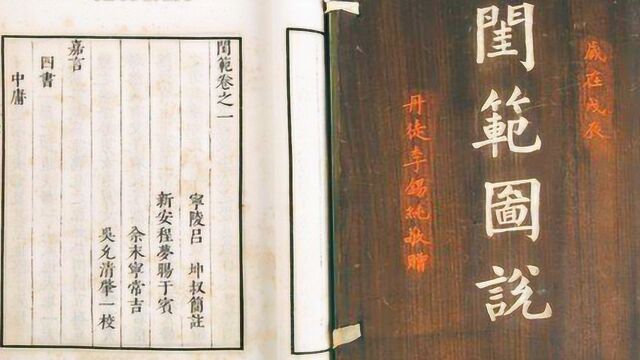 歲在戊辰
閨範圖說
丹徒李錫純敬贈
閨範卷之一
寧陵呂 坤叔簡註
新安程夢暘于賓
佘永寧常吉
吳允清肇一校
嘉言
四書
中庸